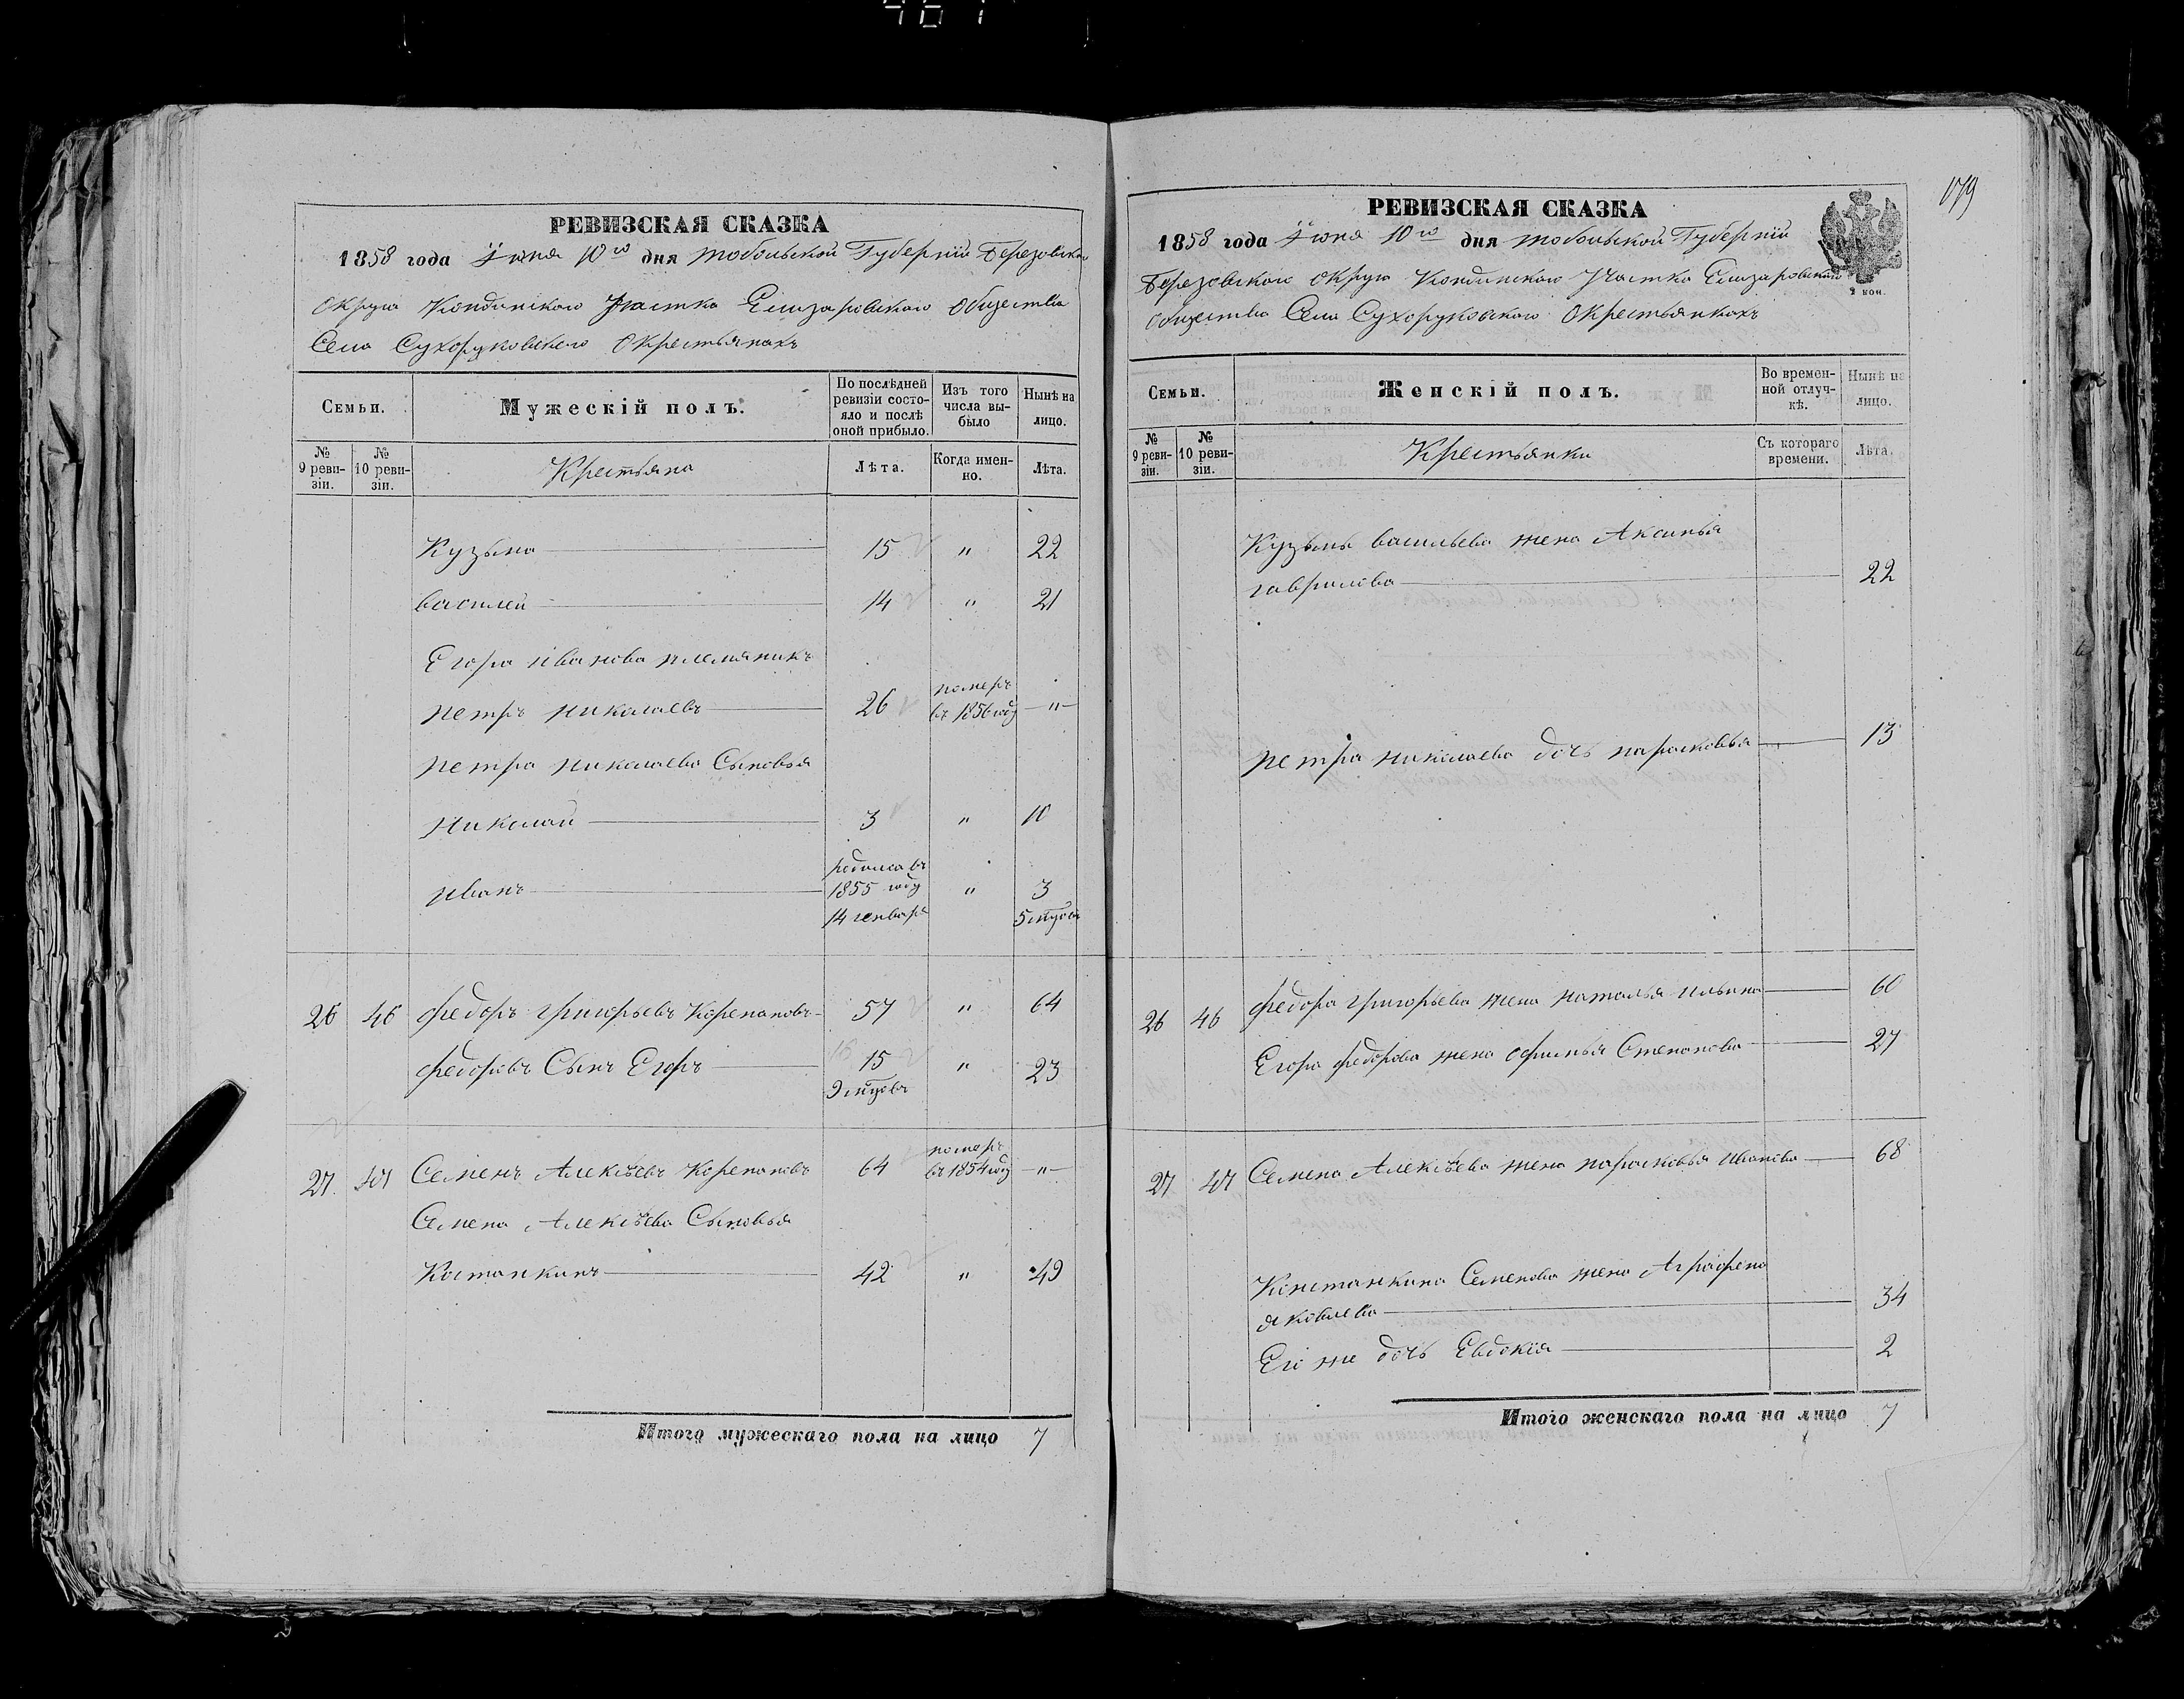 461
РЕВИЗСКАЯ СКАЗКА
1858 года Iюня 10го дня Тобольской Губернiи Березовскаго
Округа Кондинскаго Участка Елизаровскаго Общества
Села Сухоруковскаго О Крестьянахъ
Семьи.
Мужескiй полъ.
По послѣдней ревизiи состояло и послѣ оной прибыло.
Изъ того числа выбыло
Нынѣ на лицо.
№ 9 ревизiи.
№ 10 ревизiи.
Крестьяна
Лѣта.
Когда именно.
Лѣта.
Кузьма 15 " 22
василей 14 " 21
Егора иванова племяникъ
петръ николаевъ 26 померъ въ 1856 году — " —
петра николаева Сыновья
николай 3 " 10
иванъ родился въ 1855 году 14 генваря " 3 5 мцовъ
26 46 федоръ григорьевъ Корепановъ 57 " 64
федоровъ Сынъ Егоръ 15 9 мцовъ " 23
27 47 Семенъ Алексѣевъ Корепановъ 64 померъ въ 1854 году — " —
Семена Алексѣева Сыновья
Костанкинъ 42 " 49
Итого мужескаго пола на лицо 7
179
РЕВИЗСКАЯ СКАЗКА
1858 года Iюня 10го дня Тобольской Губернiи
Березовскаго Округа Кондинскаго Участка Елизаровскаго
Общества Села Сухоруковскаго О Крестьянкахъ
2 коп.
Семьи.
Женскiй полъ.
Во временной отлучкѣ.
Нынѣ на лицо.
№ 9 ревизiи.
№ 10 ревизiи.
Крестьянки
Съ котораго времени.
Лѣта.
Кузьмы васильева жена Аксинья
гаврилова 22
петра николаева дочь парасковья 13
26 46 федора григорьева жена наталья ильина 60
Егора федорова жена офимья Степанова 27
27 47 Семена Алексѣева жена парасковья иванова 68
Констанкина Семенова жена Аграфена
яковлева 34
Его же дочь Евдокiя 2
Итого женскаго пола на лицо 7